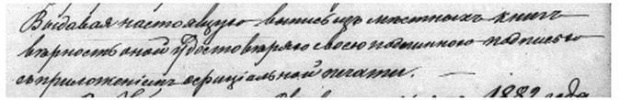 Выдавая настоящую выпись изъ метрическихъ книгъ
вѣрность оной удостовѣряю своею подписью
съ приложеніемъ оффиціальной печати. —
1882 года